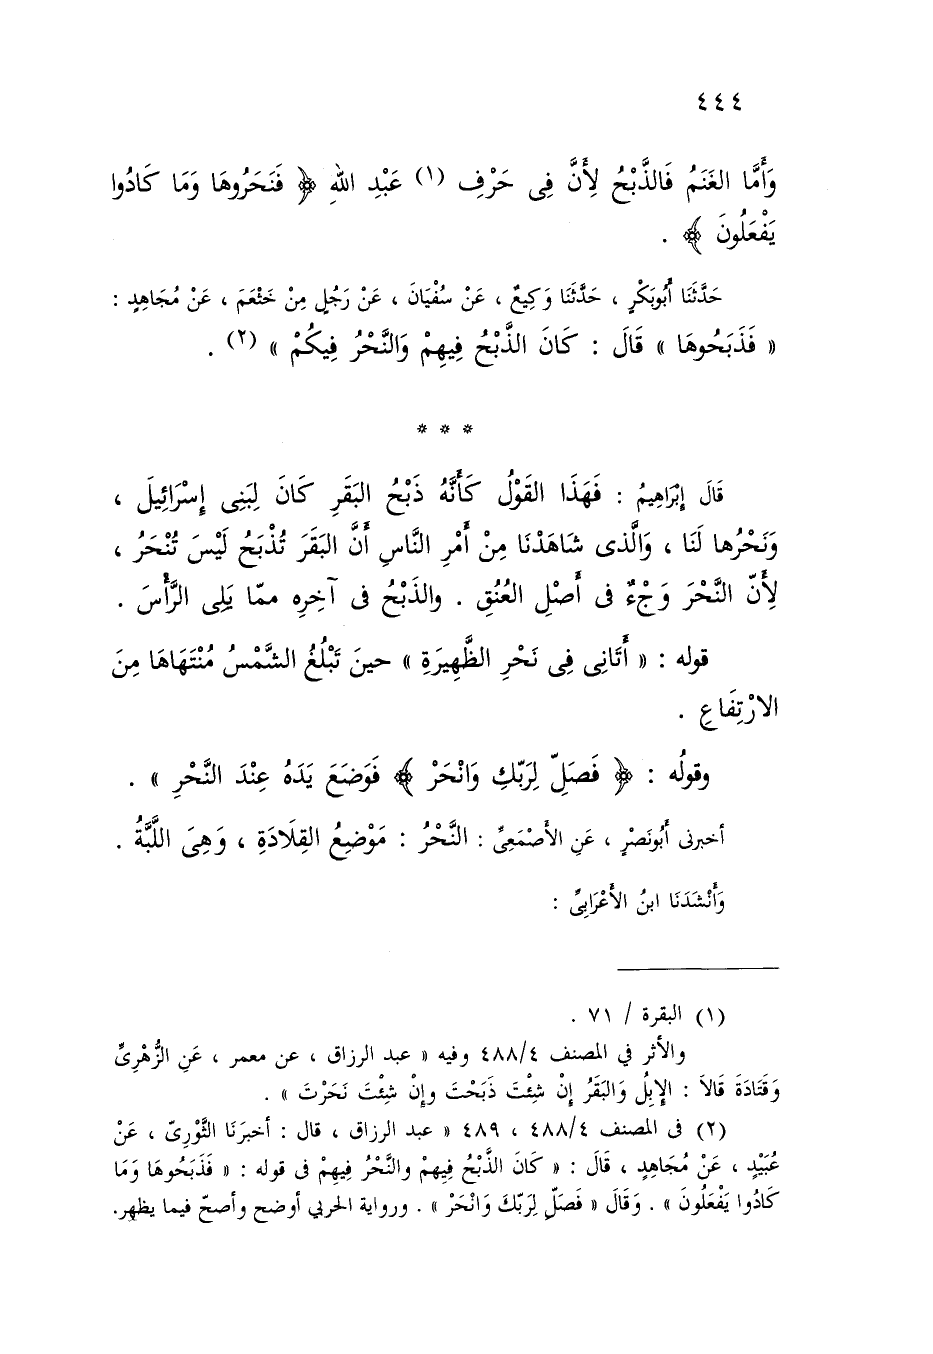 ٤٤٤
وَأَمَّا الغَنَمُ فَالذَّبْحُ لِأَنَّ فِى حَرْفِ (١) عَبْدِ اللهِ ﴿ فَنَحَرُوهَا وَمَا كَادُوا
يَفْعَلُونَ ﴾ .
حَدَّثَنَا أَبُوبَكْرٍ ، حَدَّثَنَا وَكِيعٌ ، عَنْ سُفْيَانَ ، عَنْ رَجُلٍ مِنْ خَثْعَمَ ، عَنْ مُجَاهِدٍ :
« فَذَبَحُوهَا » قَالَ : كَانَ الذَّبْحُ فِيهِمْ وَالنَّحْرُ فِيكُمْ » (٢) .
* * *
قَالَ إِبْرَاهِيمُ : فَهَذَا القَوْلُ كَأَنَّهُ ذَبْحُ البَقَرِ كَانَ لِبَنِى إِسْرَائِيلَ ،
وَنَحْرُها لَنَا ، وَالَّذى شَاهَدْنَا مِنْ أَمْرِ النَّاسِ أَنَّ البَقَرَ تُذْبَحُ لَيْسَ تُنْحَرُ ،
لِأَنّ النَّحْرَ وَجْءٌ فى أَصْلِ العُنُقِ . والذَبْحُ فى آخِرِه ممّا يَلِى الرَّأْسَ .
قوله : « أَتَانِى فِى نَحْرِ الظَّهِيرَةِ » حينَ تَبْلُغُ الشَّمْسُ مُنْتَهَاهَا مِنَ
الارْتِفَاعِ .
وقولُه : ﴿ فَصَلِّ لِرَبّكِ وَانْحَرْ ﴾ فَوَضَعَ يَدَهُ عِنْدَ النَّحْرِ » .
أخبرنى أَبُونَصْرٍ ، عَنِ الأَصْمَعِىِّ : النَّحْرُ : مَوْضِعُ القِلَادَةِ ، وَهِىَ اللَّبَّةُ .
وَأَنْشَدَنَا ابنُ الأَعْرَابِىِّ :
(١) البقرة / ٧١ .
والأثر في المصنف ٤٨٨/٤ وفيه « عبد الرزاق ، عن معمر ، عَنِ الزُّهْرِىِّ
وَقَتَادَةَ قَالاَ : الإِبِلُ وَالبَقَرُ إِنْ شِئْتَ ذَبَحْتَ وإِنْ شِئْتَ نَحَرْتَ » .
(٢) فى المصنف ٤٨٨/٤ ، ٤٨٩ « عبد الرزاق ، قال : أخبرَنَا الثَّوْرِىّ ، عَنْ
عُبَيْدٍ ، عَنْ مُجَاهِدٍ ، قَالَ : « كَانَ الذَّبْحُ فِيهِمْ والنَّحْرُ فِيهِمْ فى قوله : « فَذَبَحُوهَا وَمَا
كَادُوا يَفْعَلُونَ » . وَقَالَ « فَصَلِّ لِرَبّكَ وَانْحَرْ » . ورواية الحربي أوضح وأصحّ فيما يظهر.